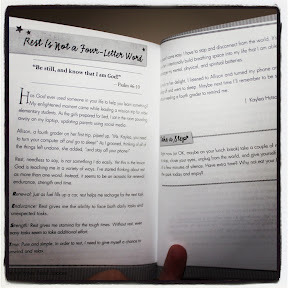 Rest Is Not a Four-Letter Word
"Be still, and know that I am God!"
—Psalm 46:10
Has God ever used someone in your life to help you learn something?
My enlightened moment came while leading a mission trip for
elementary students. As the girls prepared for bed, I sat in the
away on my laptop, updating parents using social media.
Allison, a fourth grader on her first trip, piped up, "Ms. Kaylea, you need
to turn your computer off and go to sleep." As I grinned, thinking of all of
the things left undone, she added, "and stay off your phone!"
Rest, needless to say, is not something I do easily. Yet this is the lesson
God is teaching me in a variety of ways. I've started thinking about rest
as more than one word. Instead, it seems to be an acrostic for renewal,
endurance, strength and time.
Renewal: Just as fuel fills up a car, rest helps me recharge for the road
Endurance: Rest gives me the ability to face both daily tasks and
unexpected tasks.
Strength: Rest gives me stamina for the tough times. Without rest, even
easy tasks seem to take additional effort.
Time: Pure and simple, in order to rest, I need to give myself a chance to
unwind and relax.
I have to stop and disconnect from the world. It's
intentionally build breathing space into my life that I am
to rest my mental, physical, and spiritual batteries.
the delight, I listened to Allison and turned my phone and
off and went to sleep. Maybe next time I'll remember to be
needing a fourth grader to remind me.
Kaylea
Take a Step
right now or OK, maybe on your lunch break) take a couple of
close your eyes, unplug from the world, and give yourself
a few minutes of silence. Have extra time? Why not
today and enjoy!